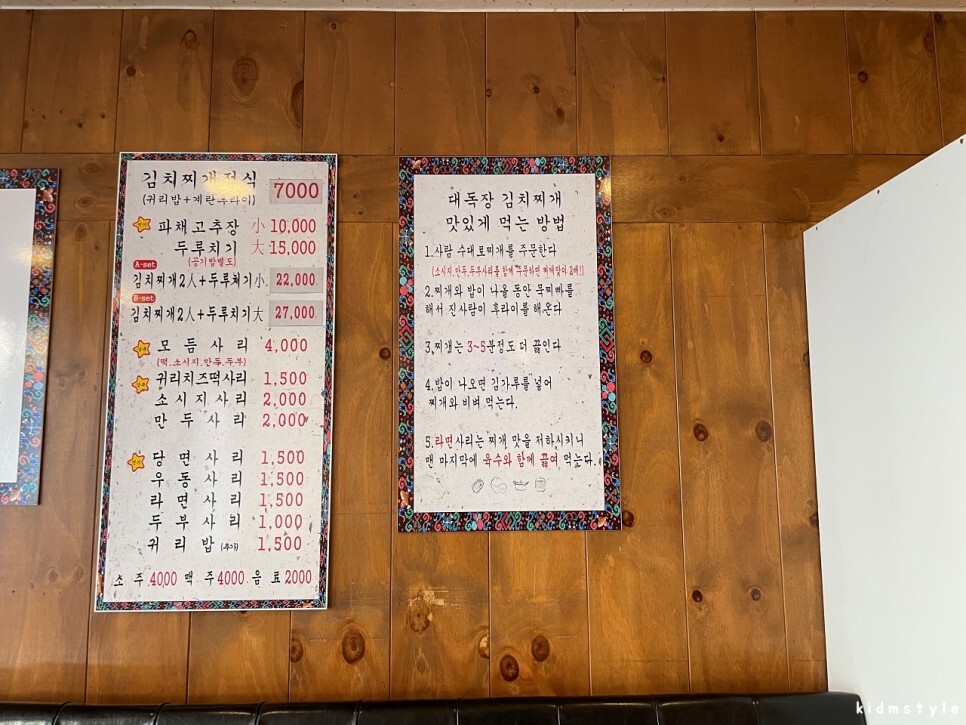 김치찌개정식 7000
(귀리밥+계란후라이)
파채고추장 小 10,000
두루치기 大 15,000
(공기밥별도)
A-set
김치찌개2人+두루치기小 22,000
B-set
김치찌개2人+두루치기大 27,000
모듬사리 4,000
(떡,소시지,만두,두부)
귀리치즈떡사리 1,500
소시지사리 2,000
만두사리 2,000
당면사리 1,500
우동사리 1,500
라면사리 1,500
두부사리 1,000
귀리밥 (추가) 1,500
소주 4000 맥주 4000 음료 2000
대독장 김치찌개
맛있게 먹는 방법
1.사람 수대로찌개를 주문한다
(소시지,만두,두부사리를 함께 주문하면 찌개맛이 2배!)
2.찌개와 밥이 나올 동안 묵찌빠를
해서 진사람이 후라이를 해온다
3.찌개는 3~5분정도 더 끓인다
4.밥이 나오면 김가루를 넣어
찌개와 비벼 먹는다.
5.라면사리는 찌개 맛을 저하시키니
맨 마지막에 육수와 함께 끓여 먹는다.
kidmstyle